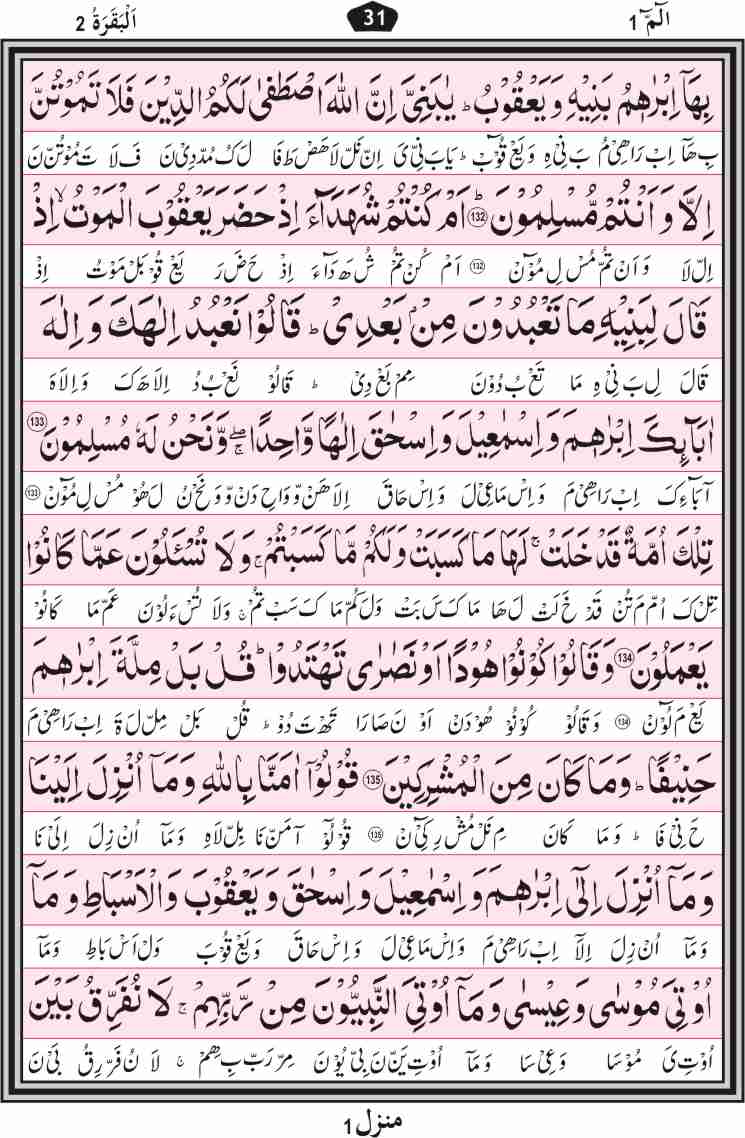 الٓمّٓ 1
31
اَلْبَقَرَةُ 2
بِهَاۤ اِبْرٰهٖمُ بَنِيْهِ وَيَعْقُوْبُ ؕ يٰبَنِيَّ اِنَّ اللّٰهَ اصْطَفٰى لَكُمُ الدِّيْنَ فَلَا تَمُوْتُنَّ
بِ هَاۤ اِبْ رَاهِىْ مُ بَ نِىْ هِ وَ يَعْ قُوْٓبْ ؕ يَابَ نِىْ یَ اِنْ نَلْ لَاهَصْ طَ فَا لَ كُ مُدْدِىْ نَ فَ لَا تَ مُوْتُنْ نَ
اِلَّا وَاَنْتُمْ مُّسْلِمُوْنَ ؕ 132 اَمْ كُنْتُمْ شُهَدَآءَ اِذْ حَضَرَ يَعْقُوْبَ الْمَوْتُ ۙ اِذْ
اِلْ لَا وَ اَنْ تُمْ مُسْ لِ مُوْٓنْ 132 اَمْ كُنْ تُمْ شُ هَ دَآءَ اِذْ حَ ضَ رَ يَعْ قُوْ بَلْ مَوْتُ اِذْ
قَالَ لِبَنِيْهِ مَا تَعْبُدُوْنَ مِنْۢ بَعْدِىْ ؕ قَالُوْا نَعْبُدُ اِلٰهَكَ وَاِلٰهَ
قَالَ لِ بَ نِىْ هِ مَا تَعْ بُ دُوْنَ مِمْ بَعْ دِىْ ؕ قَالُوْ نَعْ بُ دُ اِلَاهَ كَ وَ اِلَاهَ
اٰبَآئِكَ اِبْرٰهٖمَ وَاِسْمٰعِيْلَ وَاِسْحٰقَ اِلٰهًا وَّاحِدًا ۖۚ وَّنَحْنُ لَهٗ مُسْلِمُوْنَ 133
آبَآءِ كَ اِبْ رَاهِىْ مَ وَ اِسْ مَاعِىْ لَ وَ اِسْ حَاقَ اِلَاهَنْ وْ وَاحِ دَنْ وْ وَ نَحْ نُ لَهُوْ مُسْ لِ مُوْٓنْ 133
تِلْكَ اُمَّةٌ قَدْ خَلَتْ ۚ لَهَا مَا كَسَبَتْ وَلَكُمْ مَّا كَسَبْتُمْ ۚ وَلَا تُسْئَلُوْنَ عَمَّا كَانُوْا
تِلْ كَ اُمْ مَ تُنْ قَدْ خَ لَتْ لَ هَا مَا كَ سَ بَتْ وَ لَ كُمْ مَا كَ سَبْ تُمْ ۚ وَلَا تُسْ ءَ لُوْنَ عَمْ مَا كَانُوْ
يَعْمَلُوْنَ 134 وَقَالُوْا كُوْنُوْا هُوْدًا اَوْ نَصٰرٰى تَهْتَدُوْا ؕ قُلْ بَلْ مِلَّةَ اِبْرٰهٖمَ
يَعْ مَ لُوْٓنْ 134 وَقَالُوْ كُوْنُوْ هُوْدَنْ اَوْ نَ صَارَا تَهْ تَ دُوْ ؕ قُلْ بَلْ مِلْ لَ ةَ اِبْ رَاهِىْ مَ
حَنِيْفًا ؕ وَمَا كَانَ مِنَ الْمُشْرِكِيْنَ 135 قُوْلُوْۤا اٰمَنَّا بِاللّٰهِ وَمَاۤ اُنْزِلَ اِلَيْنَا
حَ نِىْ فَا ؕ وَ مَا كَانَ مِ نَلْ مُشْ رِ كِىْٓ نْ 135 قُوْ لُوْٓ آ مَنْ نَا بِلْ لَاهِ وَ مَاۤ اُنْ زِلَ اِلَىْ نَا
وَمَاۤ اُنْزِلَ اِلٰٓى اِبْرٰهٖمَ وَاِسْمٰعِيْلَ وَاِسْحٰقَ وَيَعْقُوْبَ وَالْاَسْبَاطِ وَمَاۤ
وَ مَاۤ اُنْ زِلَ اِلَاۤ اِبْ رَاهِىْ مَ وَ اِسْ مَاعِىْ لَ وَ اِسْ حَاقَ وَ يَعْ قُوْبَ وَلْ اَسْ بَاطِ وَ مَاۤ
اُوْتِىَ مُوْسٰى وَعِيْسٰى وَمَاۤ اُوْتِىَ النَّبِيُّوْنَ مِنْ رَّبِّهِمْ ۚ لَا نُفَرِّقُ بَيْنَ
اُوْتِ ىَ مُوْسَا وَ عِىْ سَا وَ مَاۤ اُوْتِ يَنْ نَ بِىْ يُوْ نَ مِرْ رَبْ بِ هِمْ ۚ لَا نُ فَرْ رِقُ بَىْ نَ
منزل 1